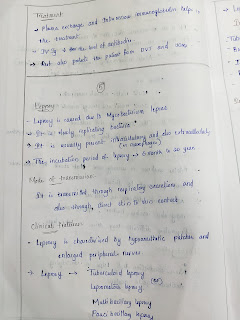 Treatment
→ Plasma exchange and Intravenous immunoglobulin helps in
the treatment.
→ IVIg ↓ the level of antibodies
→ But also protect the patient from DVT and
5
Leprosy
- Leprosy is caused due to Mycobacterium leprae
→ Slow growing replicating bacteria
→ It is mostly present intracellularly and also extracellularly
(in macrophages)
→ The incubation period of leprosy → 6 month to 20 year
Mode of transmission
It is transmitted through respiratory secretions and
also through direct skin to skin contact.
Clinical features
- Leprosy is characterised by hypoanesthetic patches and
enlarged peripheral nerves
→ Leprosy → Tuberculoid leprosy
Lepromatous leprosy (or)
Multibacillary leprosy
Pauci bacillary leprosy